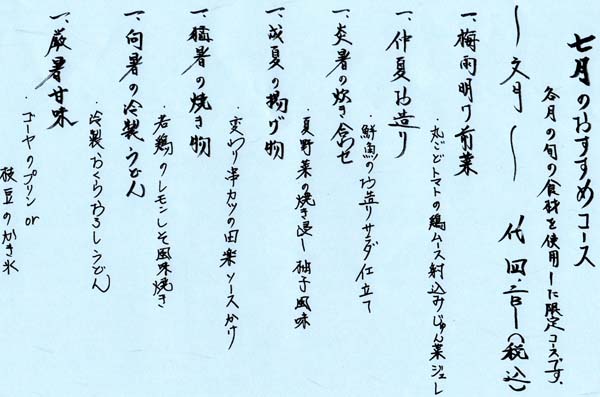 七月のおすすめコース
各月の旬の食材を使用した限定コースです。
〜文月〜 代 (税込)
一、梅雨明け前菜
・丸ごとトマトの鶏ムース射込みじゅん菜ジュレ
一、仲夏お造り
・鮮魚のお造りサラダ仕立て
一、炎暑の炊き合せ
・夏野菜の焼き浸し柚子風味
一、盛夏の揚げ物
・変わり串カツの田楽ソースかけ
一、猛暑の焼き物
・若鶏のレモンしそ風味焼き
一、向暑の冷製うどん
・冷製おくらおろしうどん
一、厳暑甘味
・ゴーヤのプリン or
枝豆のかき氷